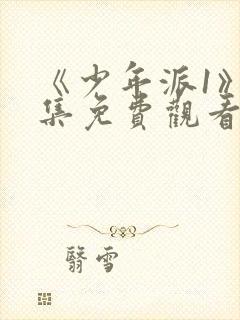 《少年派1》
集免費觀看
翳雪